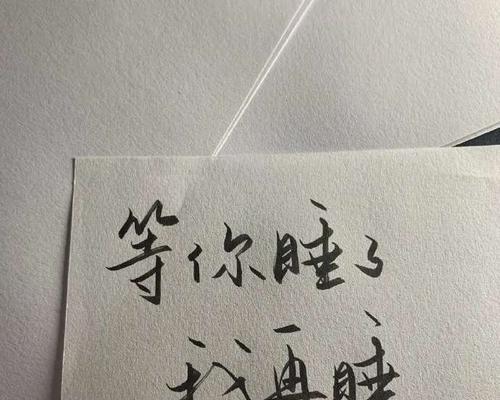 等你睡了
我再睡